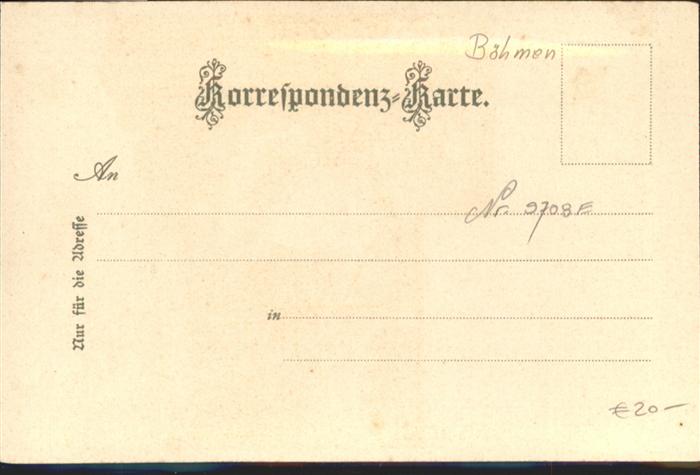 Böhmen
Korrespondenz-Karte.
An
Nr. 9708E
Nur für die Adresse
in
€20—